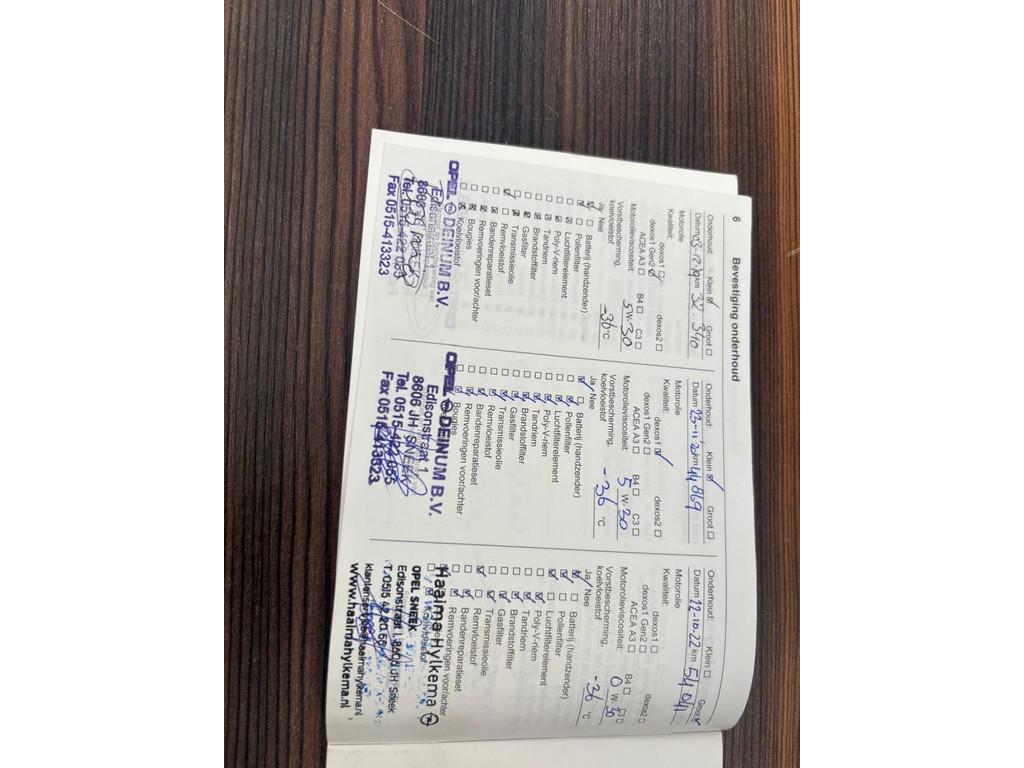 6 Bevestiging onderhoud
Onderhoud: Klein Groot
Datum 03-12-19 km 32.340
Motorolie
Kwaliteit: dexos1 dexos2
dexos1 Gen2
ACEA A3 B4 C3
Motorolieviscositeit: 5W-30
Vorstbescherming,
koelvloeistof -36 °C
Ja Nee
Batterij (handzender)
Pollenfilter
Luchtfilterelement
Poly-V-riem
Tandriem
Brandstoffilter
Gasfilter
Transmissieolie
Remvloeistof
Bandenreparatieset
Remvoeringen voor/achter
Bougies
Koelvloeistof
OPEL DEINUM B.V.
Edisonstraat
8606 JH
Tel. 0515-422 055
Fax 0515-413323
Onderhoud: Klein Groot
Datum 23-11-'20 km 44869
Motorolie
Kwaliteit: dexos1 dexos2
dexos1 Gen2
ACEA A3 B4 C3
Motorolieviscositeit: 5 W-30
Vorstbescherming,
koelvloeistof -36 °C
Ja Nee
Batterij (handzender)
Pollenfilter
Luchtfilterelement
Poly-V-riem
Tandriem
Brandstoffilter
Gasfilter
Transmissieolie
Remvloeistof
Bandenreparatieset
Remvoeringen voor/achter
Bougies
OPEL DEINUM B.V.
Edisonstraat 1
8606 JH SNEEK
Tel. 0515-422 055
Fax 0515-413323
Onderhoud: Klein Groot
Datum 12-10-22 km 54041
Motorolie
Kwaliteit: dexos1 dexos2
dexos1 Gen2
ACEA A3 B4 C3
Motorolieviscositeit: 0 W-30
Vorstbescherming,
koelvloeistof -36 °C
Ja Nee
Batterij (handzender)
Pollenfilter
Luchtfilterelement
Poly-V-riem
Tandriem
Brandstoffilter
Gasfilter
Transmissieolie
Remvloeistof
Bandenreparatieset
Remvoeringen voor/achter
Koelvloeistof
Haaima Hylkema
OPEL SNEEK
Edisonstraat 1, 8606 JH Sneek
T. 0515 42 20 55
klantenservice@haaimahylkema.nl
www.haaimahylkema.nl